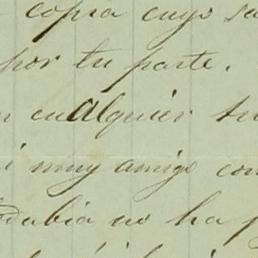 copia cuyo
por tu parte.
en cualquier
mi muy amigo con
no ha